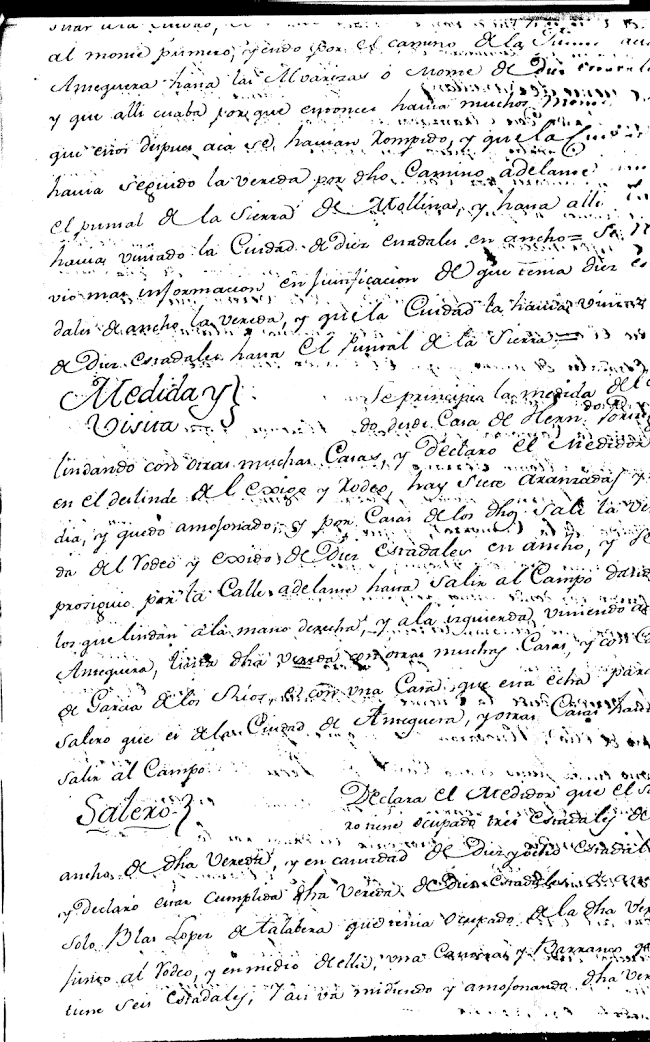 al monte primero, yendo por el camino de la
Antequera hasta las Alvarizas o Monte de Diez
y que alli estaba por que entonces havia muchos Monte
que estos despues aca se havian Rompido, y que la Ciu
havia seguido la vereda por dho Camino adelante
el puntal de la Sierra de Mollina, y hasta alli
havia visitado la Ciudad de diez estadales en ancho = Se
vio mas informacion en Justificacion de que tenia diez es
dales de ancho la vereda, y que la Ciudad la havia
de Diez estadales hasta el Puntal de la Sierra =
Medida y
Visita
Se principia la medida de
do desde Casa de Hern.do
lindando con otras muchas Casas, y Declaró el Medidor
en el deslinde del exigo y Rodeo, hay Siete Aranzadas y
dia, y quedó amojonado, y por Casas de los dhos Sale la Ve
da del Rodeo y exido, de Diez estadales en ancho, y Se
prosiguio por la Calle adelante hasta Salir al Campo
los que lindan a la mano derecha, y a la izquierda, viniendo de
Antequera, linda dha vereda con otras muchas Casas, y con
de Garcia de los Rios, et con una Casa que esta echa para
Salero que es de la Ciudad de Antequera, y otras Casas hasta
Salir al Campo
Salero
Declara el Medidor que el Sa
ro tiene ocupado tres estadales de
ancho de dha Vereda, y en cantidad de Diez y ocho estadal
y Declaró estar Cumplida dha Vereda de Diez estadales de
Solo Blas Lopez de talabera que tenia ocupado de la dha Ver
Junto al Rodeo, y en medio de ella, una y Barranco
tiene Seis estadales, y asi va midiendo y amojonando dha Ver